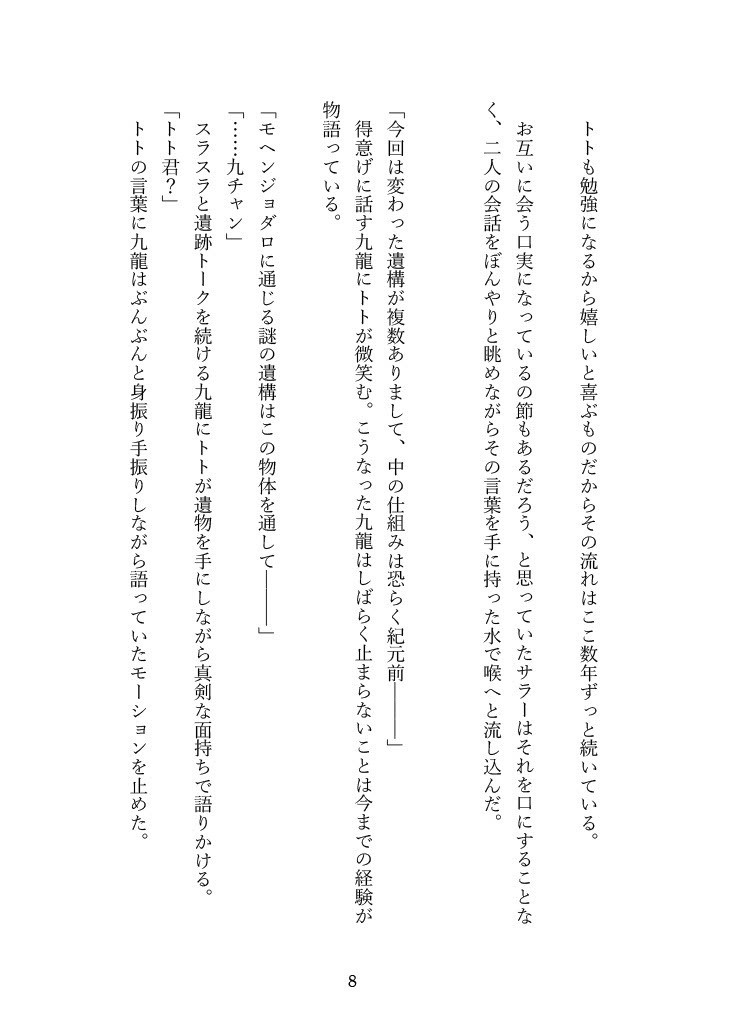 トトも勉強になるから嬉しいと喜ぶものだからその流れはここ数年ずっと続いている。
お互いに会う口実になっているの節もあるだろう、と思っていたサラーはそれを口にすることな
く、二人の会話をぼんやりと眺めながらその言葉を手に持った水で喉へと流し込んだ。
「今回は変わった遺構が複数ありまして、中の仕組みは恐らく紀元前―――」
得意げに話す九龍にトトが微笑む。こうなった九龍はしばらく止まらないことは今までの経験が
物語っている。
「モヘンジョダロに通じる謎の遺構はこの物体を通して―――」
「……九チャン」
スラスラと遺跡トークを続ける九龍にトトが遺物を手にしながら真剣な面持ちで語りかける。
「トト君？」
トトの言葉に九龍はぶんぶんと身振り手振りしながら語っていたモーションを止めた。
8